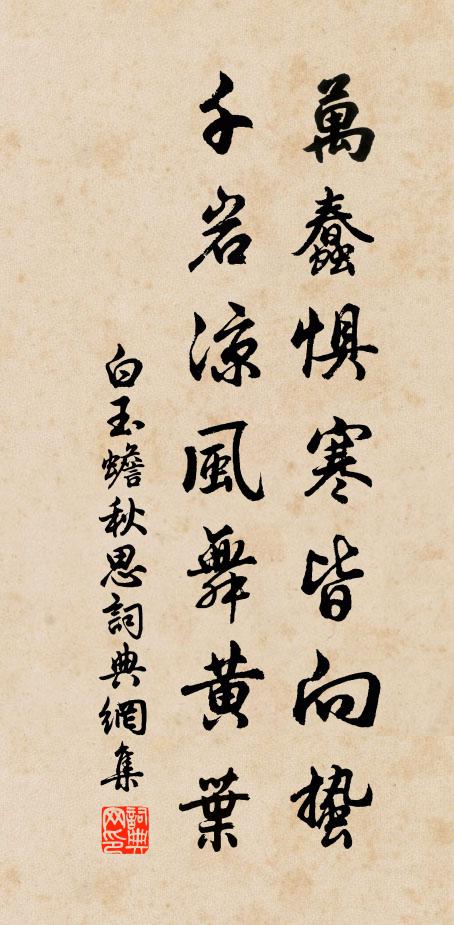 萬蠢惧寒皆向蟄
千岩涼風舞黄葉
白玉蟾秋思詞典網集
詞典网印